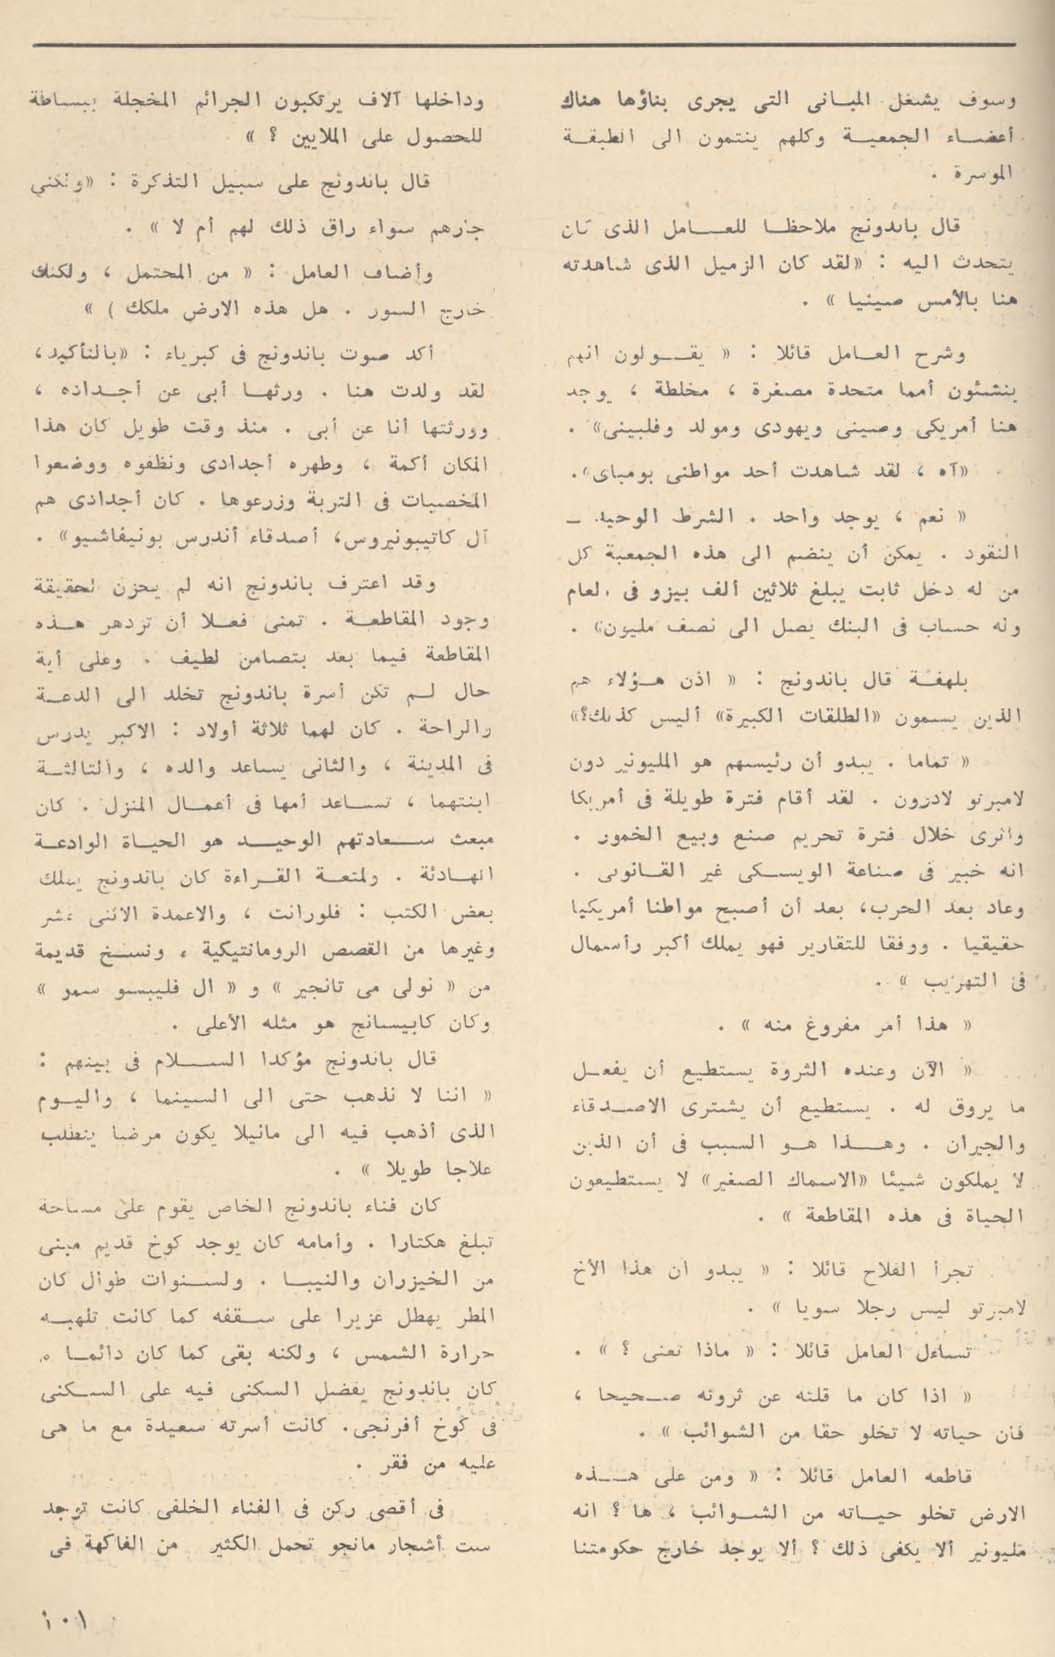 وسوف يشغل المبانى التى يجرى بناؤها هناك
أعضاء الجمعية وكلهم ينتمون الى الطبقة
الموسرة .
قال باندونج ملاحظا للعامل الذى كان
يتحدث اليه : «لقد كان الزميل الذى شاهدته
هنا بالأمس صينيا » .
وشرح العامل قائلا : « يقولون انهم
ينشئون أمما متحدة مصغرة ، مخلطة ، يوجد
هنا أمريكى وصينى ويهودى ومولد وفلبينى» .
«آه ، لقد شاهدت أحد مواطنى بومباى».
« نعم ، يوجد واحد . الشرط الوحيد ــ
النقود . يمكن أن ينضم الى هذه الجمعية كل
من له دخل ثابت يبلغ ثلاثين ألف بيزو فى العام
وله حساب فى البنك يصل الى نصف مليون» .
بلهفة قال باندونج : « اذن هؤلاء هم
الذين يسمون «الطلقات الكبيرة» أليس كذلك؟»
« تماما . يبدو أن رئيسهم هو المليونير دون
لامبرتو لادرون . لقد أقام فترة طويلة فى أمريكا
واثرى خلال فترة تحريم صنع وبيع الخمور .
انه خبير فى صناعة الويسكى غير القانونى .
وعاد بعد الحرب، بعد أن أصبح مواطنا أمريكيا
حقيقيا . ووفقا للتقارير فهو يملك أكبر رأسمال
فى التهريب » .
« هذا أمر مفروغ منه » .
« الآن وعنده الثروة يستطيع أن يفعل
ما يروق له . يستطيع أن يشترى الاصدقاء
والجيران . وهذا هو السبب فى أن الذين
لا يملكون شيئا «الاسماك الصغير» لا يستطيعون
الحياة فى هذه المقاطعة » .
تجرأ الفلاح قائلا : « يبدو أن هذا الأخ
لامبرتو ليس رجلا سويا » .
تساءل العامل قائلا : « ماذا تعنى ؟ » .
« اذا كان ما قلته عن ثروته صحيحا ،
فان حياته لا تخلو حقا من الشوائب » .
قاطعه العامل قائلا : « ومن على هذه
الارض تخلو حياته من الشوائب ، ها ؟ انه
مليونير ألا يكفى ذلك ؟ ألا يوجد خارج حكومتنا
وداخلها آلاف يرتكبون الجرائم المخجلة ببساطة
للحصول على الملايين ؟ »
قال باندونج على سبيل التذكرة : «ولكنى
جارهم سواء راق ذلك لهم أم لا » .
وأضاف العامل : « من المحتمل ، ولكنك
خارج السور . هل هذه الارض ملكك ) »
أكد صوت باندونج فى كبرياء : «بالتأكيد،
لقد ولدت هنا . ورثها أبى عن أجداده ،
وورثتها أنا عن أبى . منذ وقت طويل كان هذا
المكان أكمة ، وطهره أجدادى ونظفوه ووضعوا
المخصبات فى التربة وزرعوها . كان أجدادى هم
آل كاتيبونيروس، أصدقاء أندرس بونيفاشيو» .
وقد اعترف باندونج انه لم يحزن لحقيقة
وجود المقاطعة . تمنى فعلا أن تزدهر هذه
المقاطعة فيما بعد بتضامن لطيف . وعلى أية
حال لم تكن أسرة باندونج تخلد الى الدعة
والراحة . كان لهما ثلاثة أولاد : الاكبر يدرس
فى المدينة ، والثانى يساعد والده ، والثالثة
ابنتهما ، تساعد أمها فى أعمال المنزل . كان
مبعث سعادتهم الوحيد هو الحياة الوادعة
الهادئة . ولمتعة القراءة كان باندونج يملك
بعض الكتب : فلورانت ، والاعمدة الاثنى عشر
وغيرها من القصص الرومانتيكية ، ونسخ قديمة
من « نولى مى تانجير » و « ال فليبسو سمو »
وكان كابيسانج هو مثله الأعلى .
قال باندونج مؤكدا السلام فى بيتهم :
« اننا لا نذهب حتى الى السينما ، واليوم
الذى أذهب فيه الى مانيلا يكون مرضا يتطلب
علاجا طويلا » .
كان فناء باندونج الخاص يقوم على مساحة
تبلغ هكتارا . وأمامه كان يوجد كوخ قديم مبنى
من الخيزران والنيبا . ولسنوات طوال كان
المطر يهطل غزيرا على سقفه كما كانت تلهبه
حرارة الشمس ، ولكنه بقى كما كان دائما .
كان باندونج يفضل السكنى فيه على السكنى
فى كوخ أفرنجى. كانت أسرته سعيدة مع ما هى
عليه من فقر .
فى أقصى ركن فى الفناء الخلفى كانت توجد
ست أشجار مانجو تحمل الكثير من الفاكهة فى
١٠١